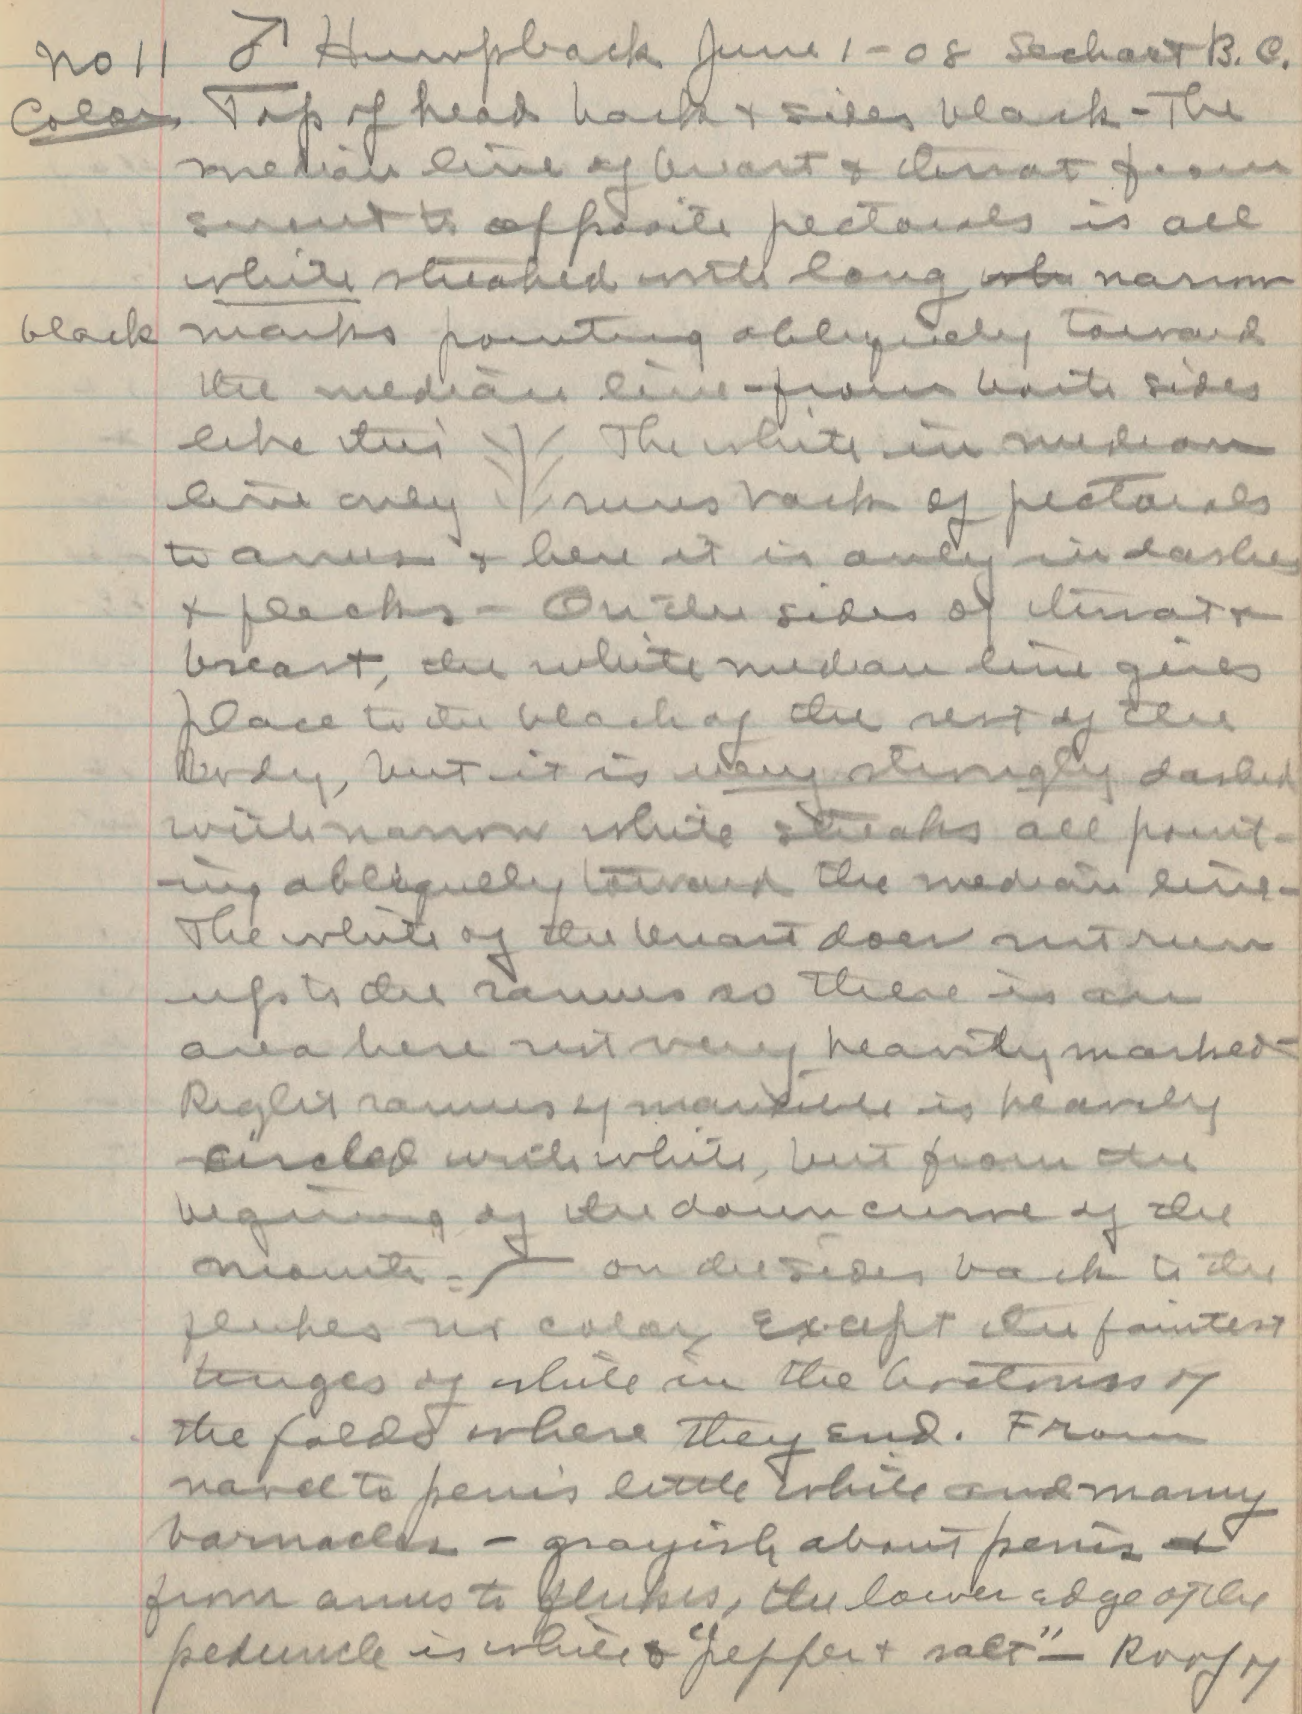 No 11 ♂ Humpback June 1-08 Sechart B.C.
Color Top of head back & sides black - The
median line of breast & throat from
snout to opposite pectorals is all
white streaked with long narrow
black marks pointing obliquely toward
the median line - from both sides
like this The white in median
line only runs back of pectorals
to anus & here it is only in dashes
& flecks - On the sides of throat &
breast, the white median line gives
place to the black of the rest of the
Body, but it is very strongly dashed
with narrow white streaks all point-
ing obliquely toward the median line -
The white of the breast does not run
up to the ramus so there is an
area here not very heavily marked -
Right ramus of mandible is heavily
circled with white, but from the
begining of the down curve of the
mouth = on the sides back to the
flukes no color except the faintest
tinges of white in the bottoms of
the folds where they end. From
navel to penis little white and many
barnacles - grayish about penis &
from anus to flukes, the lower edge of the
peduncle is white & "pepper & salt" - Roof of